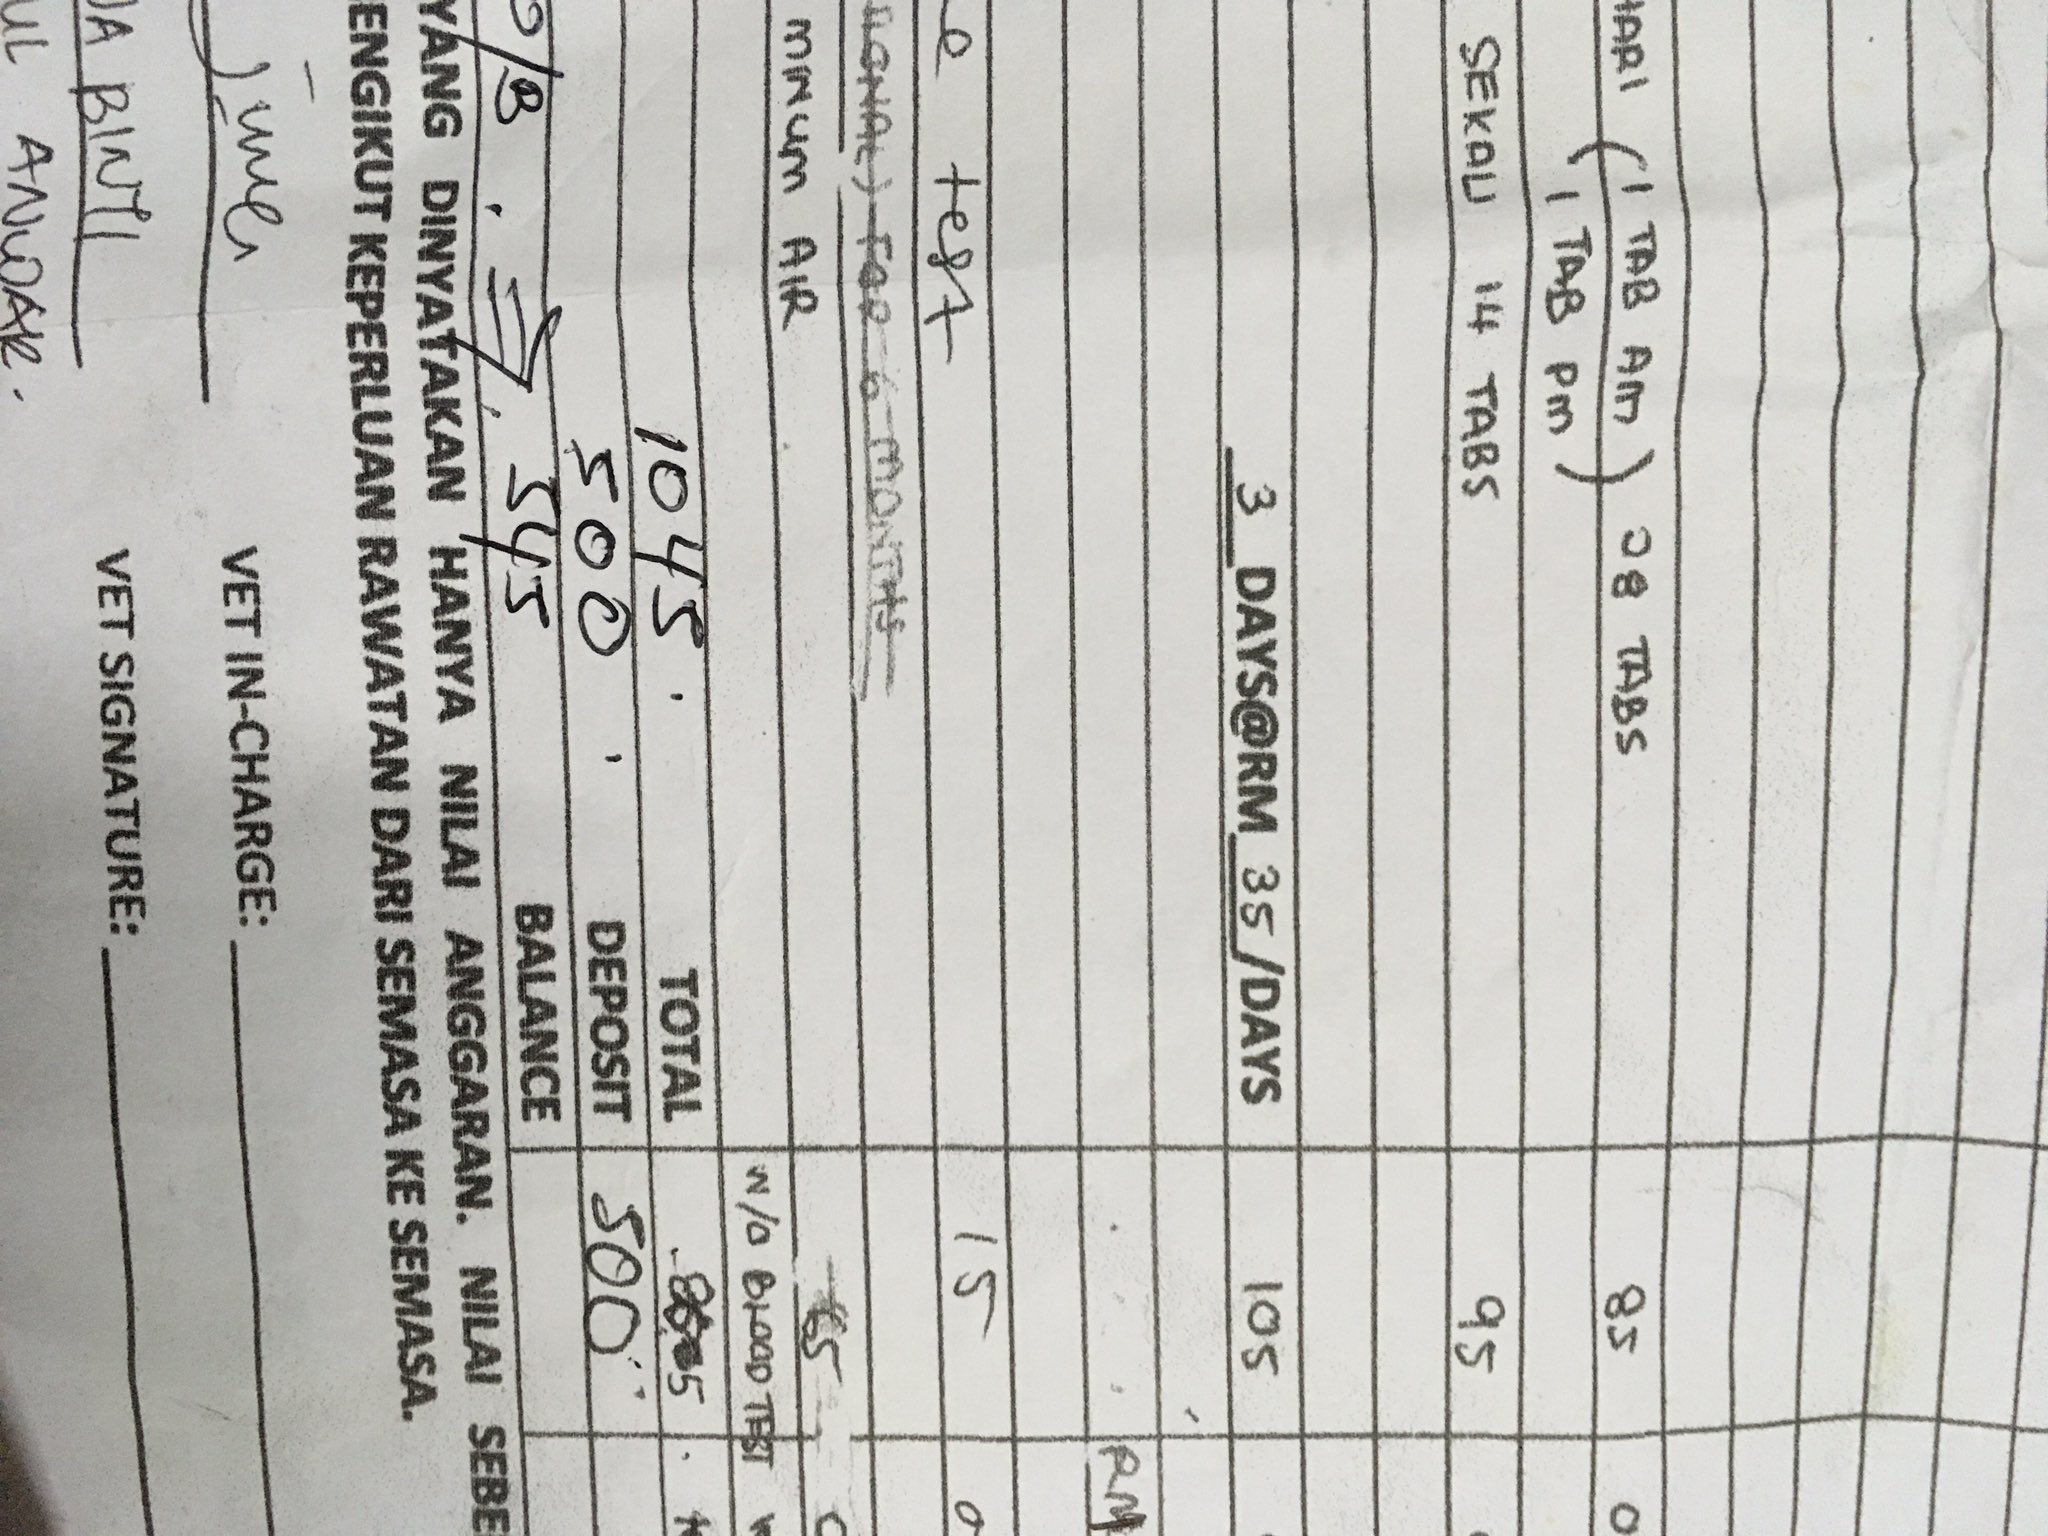 HARI (1 TAB AM) 28 TABS 85
(1 TAB PM)
SEKALI 14 TABS 95
3 DAYS@RM 35/DAYS 105
RM
test 15
FOR 6 MONTHS
MINUM AIR
W/O BLOOD TEST
1045. TOTAL
500. DEPOSIT 500
545 BALANCE
YANG DINYATAKAN HANYA NILAI ANGGARAN. NILAI SEBE
ENGIKUT KEPERLUAN RAWATAN DARI SEMASA KE SEMASA.
VET IN-CHARGE:
BINTI VET SIGNATURE:
UL ANUAR.